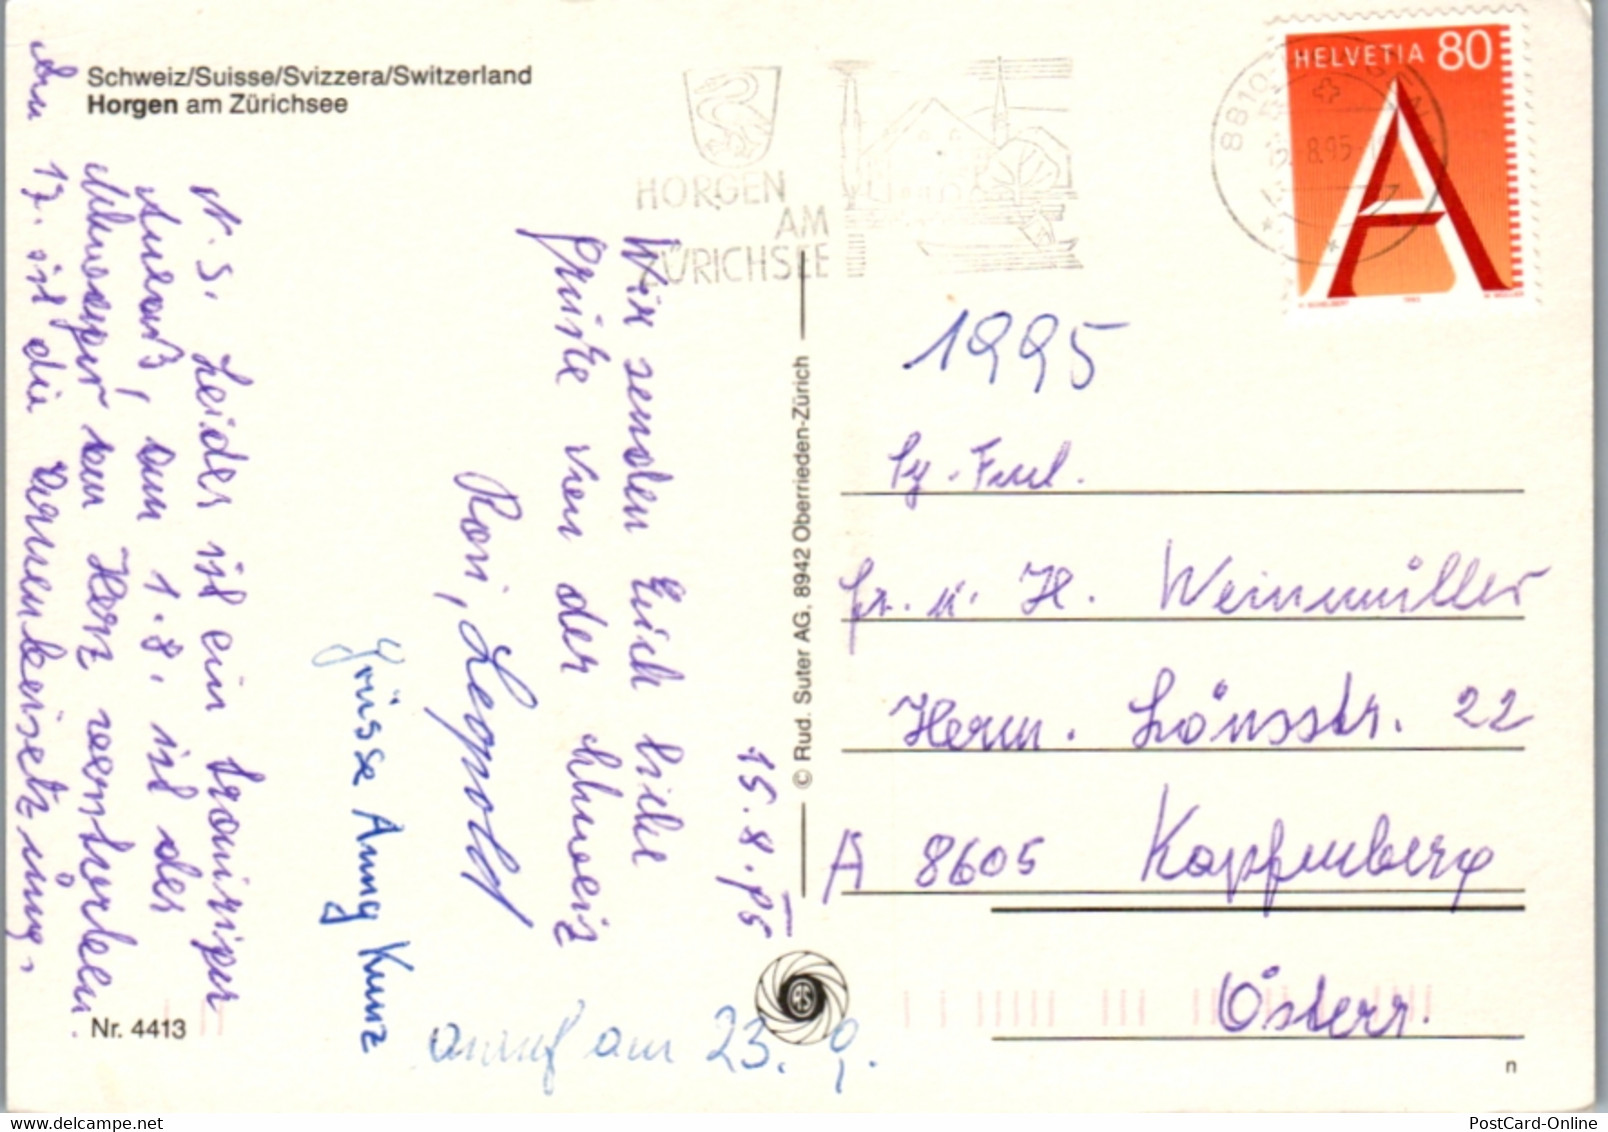 Schweiz/Suisse/Svizzera/Switzerland
Horgen am Zürichsee
HORGEN
AM
ZÜRICHSEE
8810
8.95
HELVETIA 80
A
1995
15.8.95
Wir senden Euch liebe
Grüße von der Schweiz
Rosi, Leopold
Grüsse Anny Kunz
N.S. Leider ist ein trauriger
Anlaß, am 1.8. ist der
Schwager von Herz verstorben.
Am 17. ist die Urnenbeisetzung.
Nr. 4413
anruf am 23. 9.
© Rud. Suter AG, 8942 Oberrieden-Zürich
RS
Fr. u. H. Weinmüller
Herm. Lönsstr. 22
A 8605 Kapfenberg
Österr.
n
PostCard-Online.com
PostCard-Online